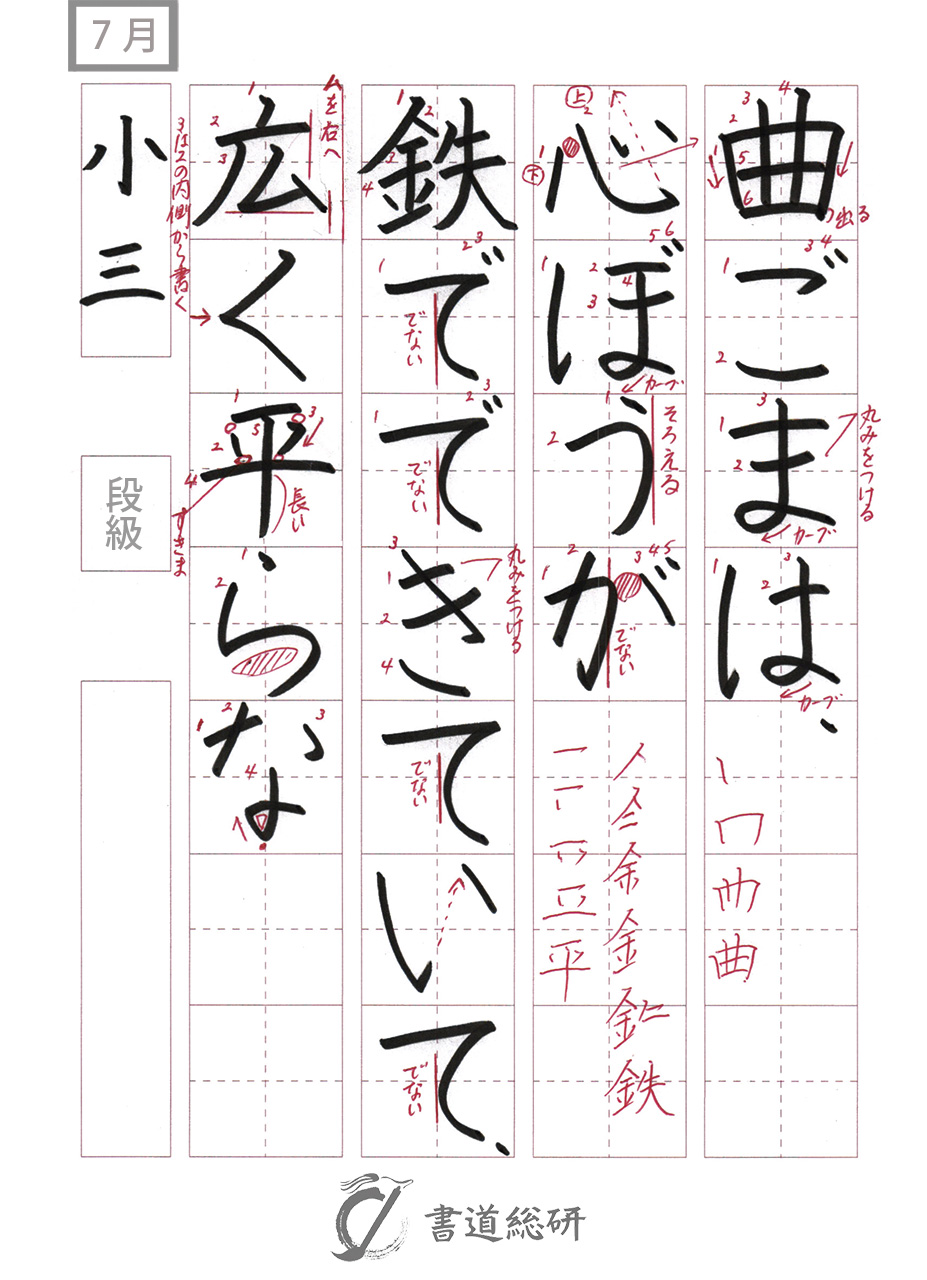 7月
曲ごまは、
心ぼうが
鉄でできていて、
広く平らな
小三
段級
出る
丸みをつける
カーブ
カーブ
上
下
カーブ
そろえる
でない
でない
でない
丸みをつける
でない
でない
ムを右へ
3は2の内側から書く
長い
すきま
書道総研